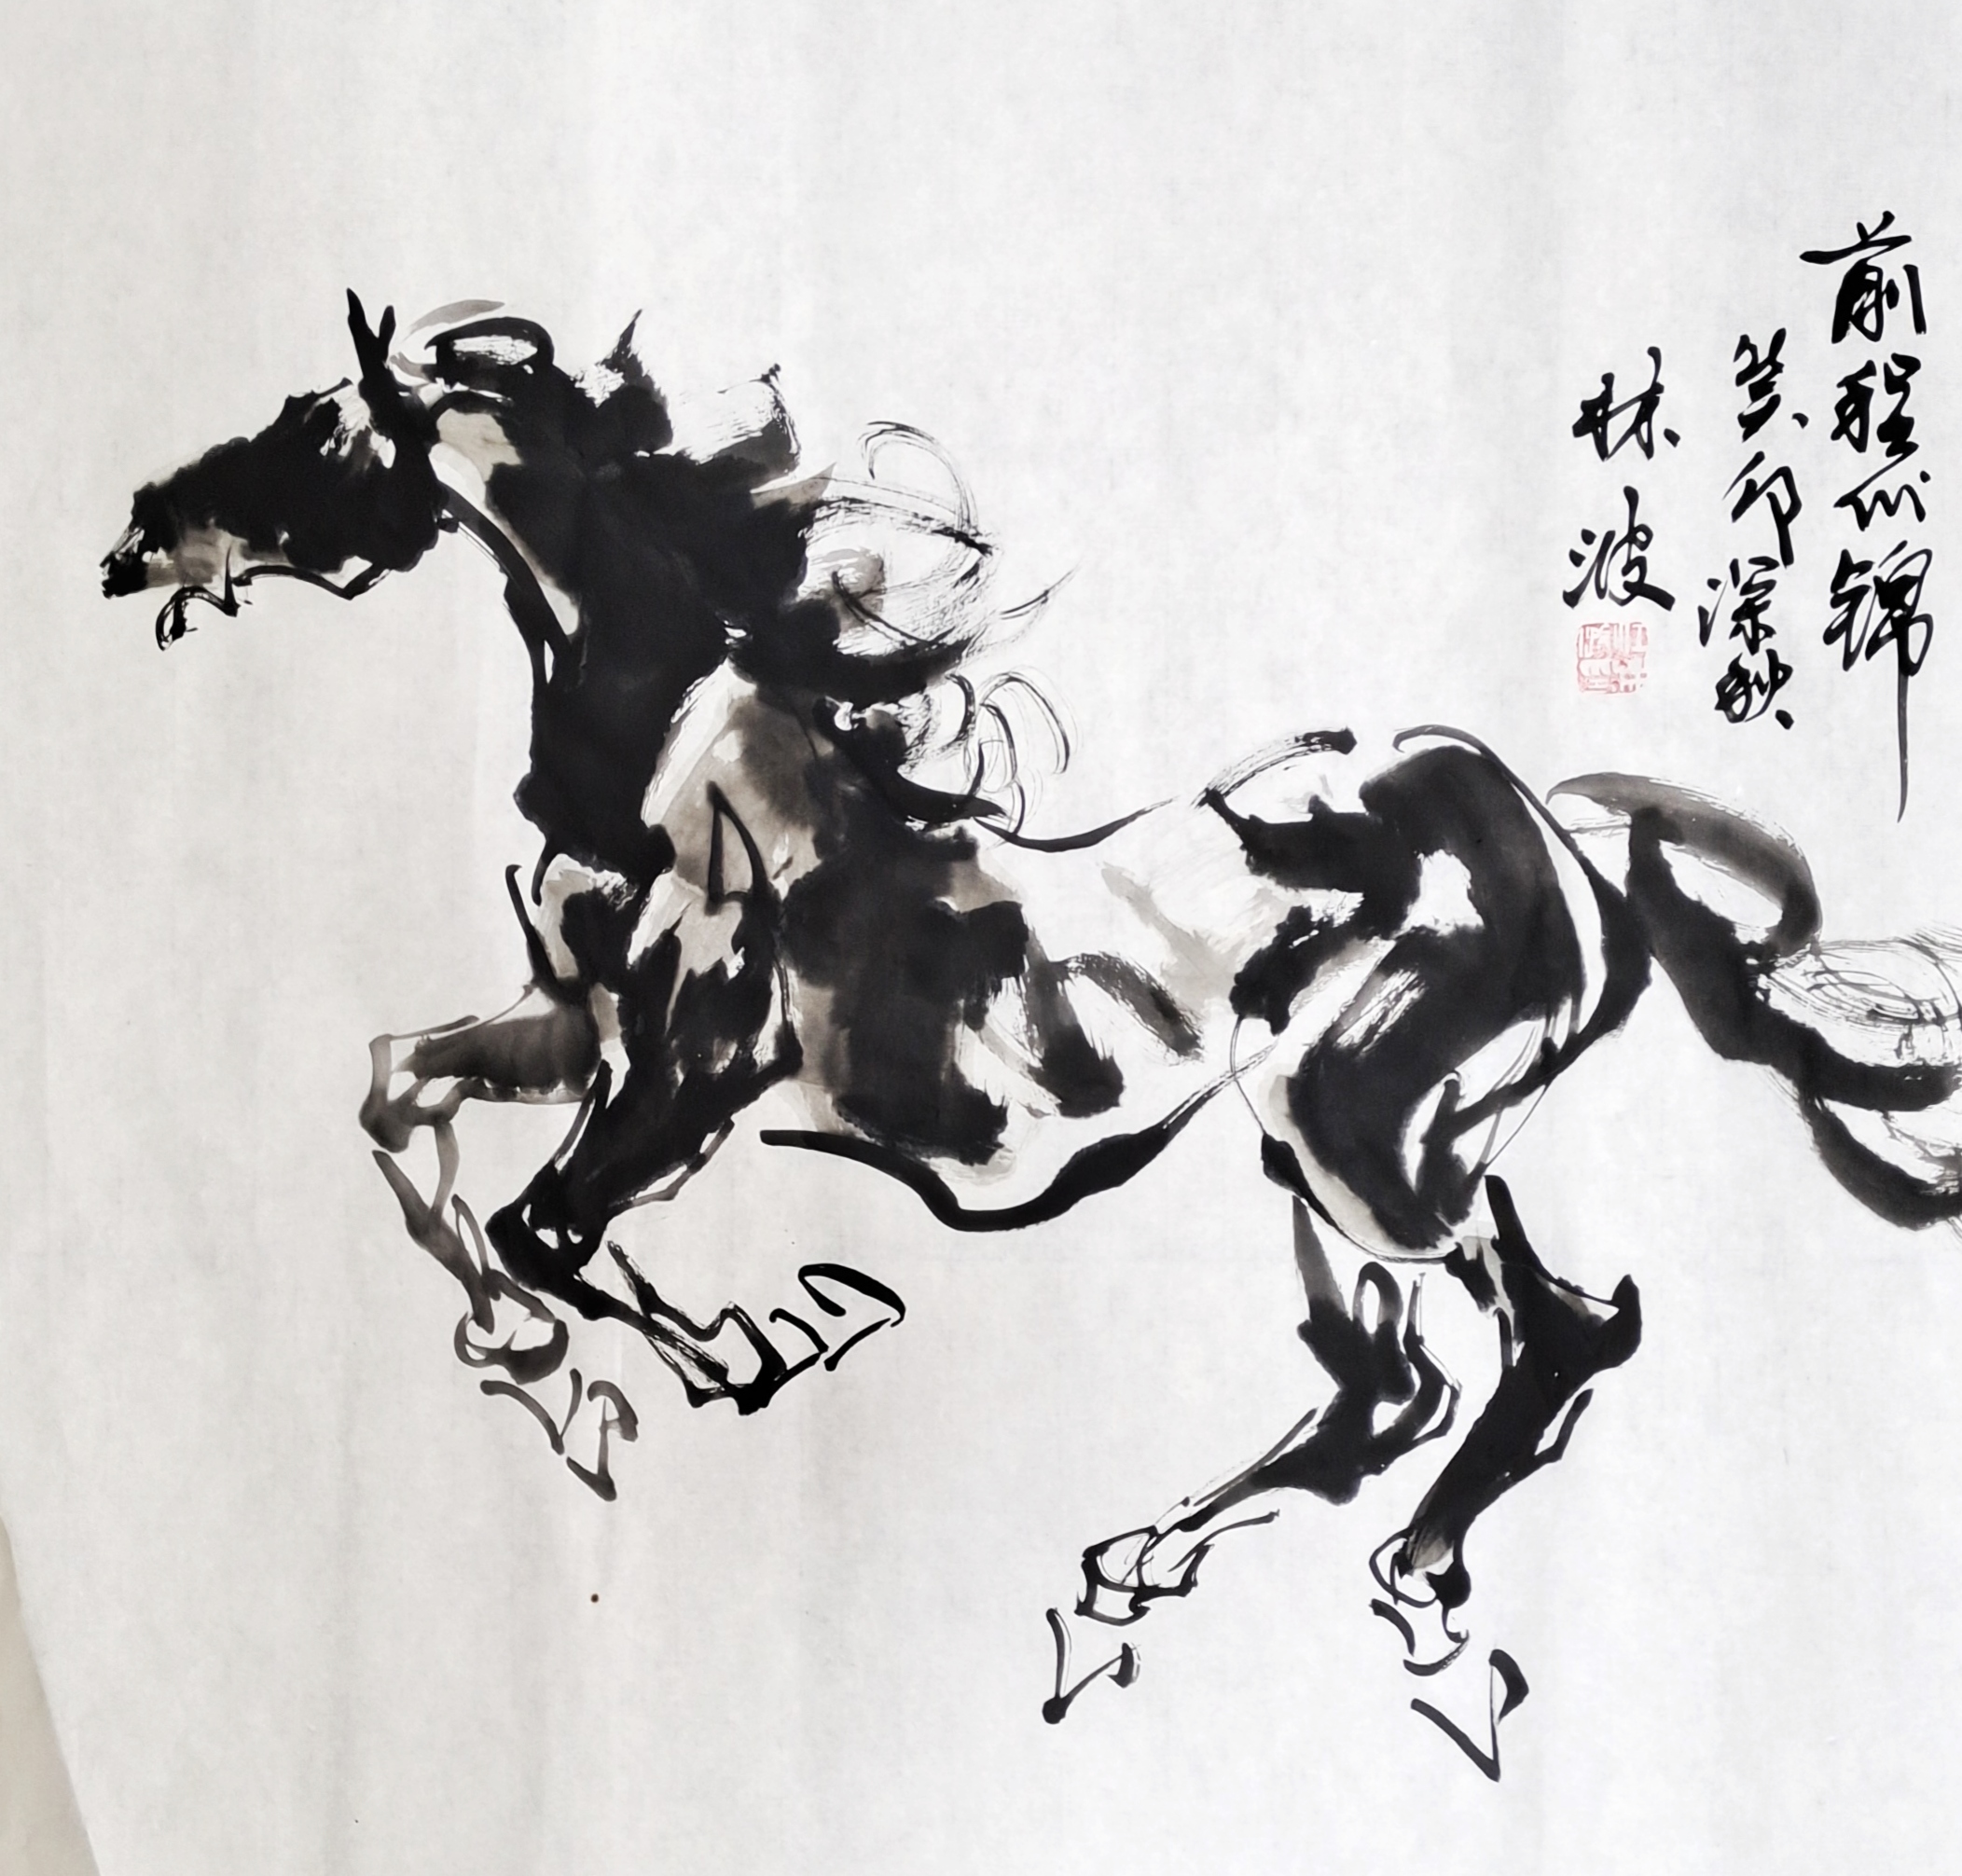 前程似锦
癸卯深秋
林波